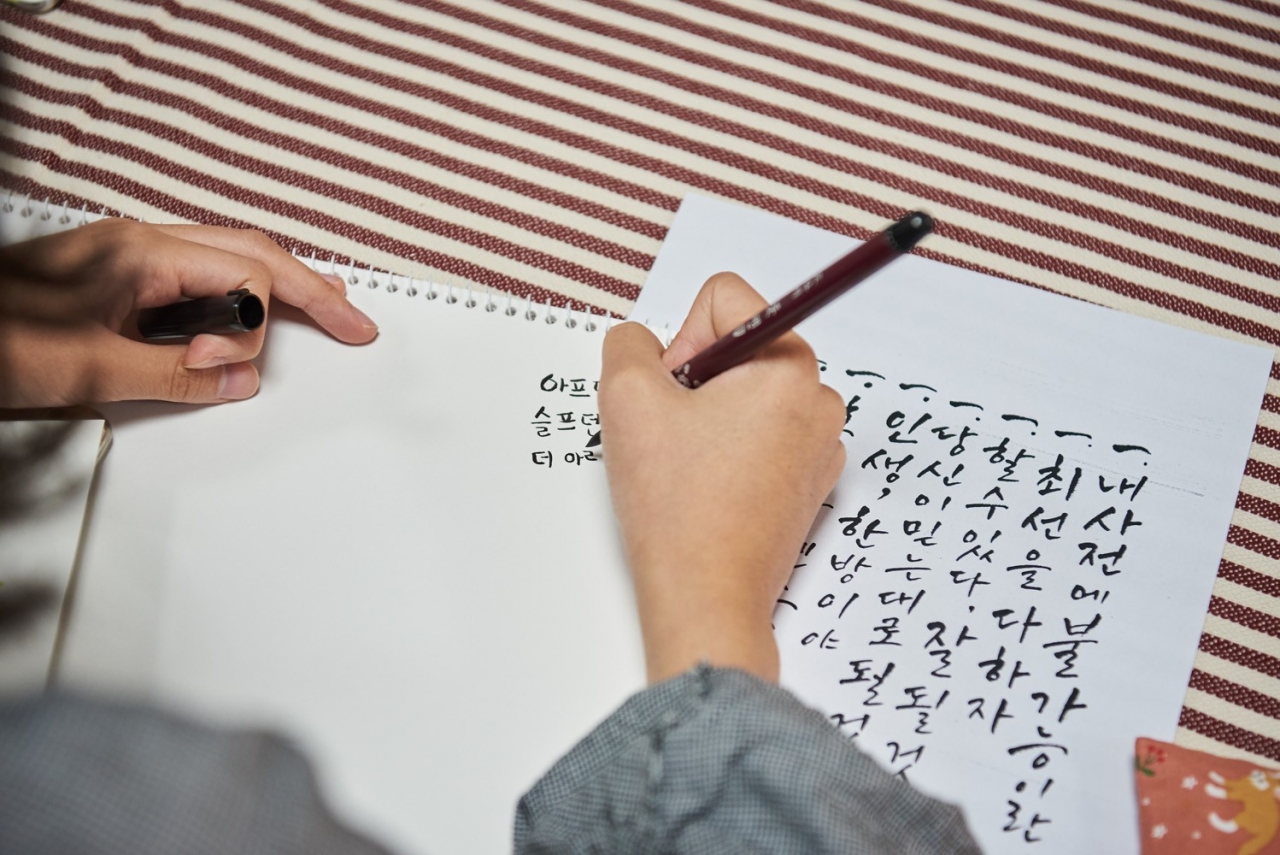 아프
슬프던
더 아
- 내 사전에 불가능이란
- 최선을 다하자
- 할 수 있다. 잘 될 것
- 당신이 믿는 대로 될 것
- 인생, 한방이야